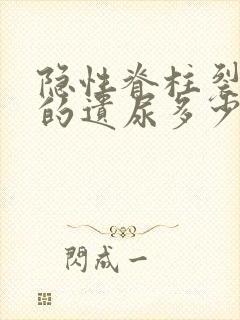 隐性脊柱裂
的遗尿多少
閃成一